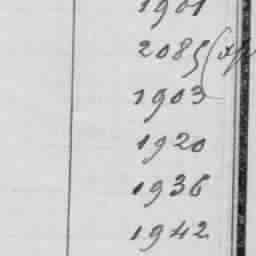 1901
2085
1903
1920
1936
1942